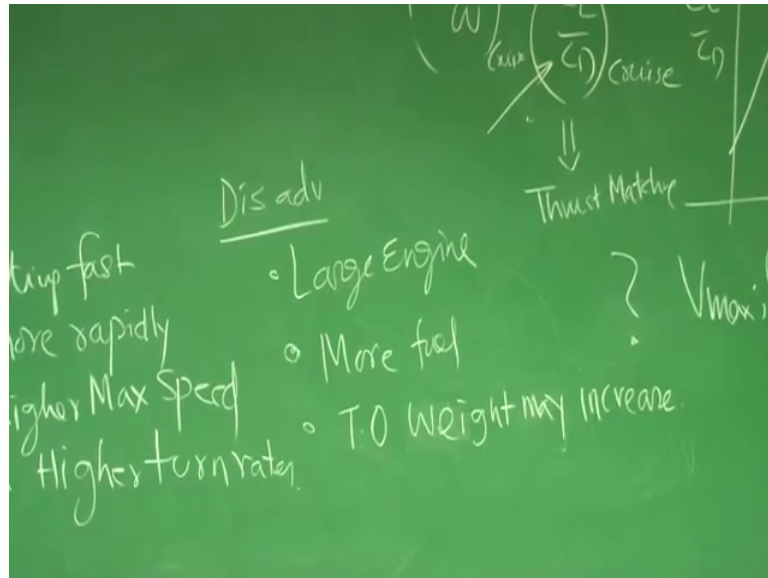 W
Cruise
C̅D
Cruise
CD
⇓
Thrust Matching
Disadv
fast
rapidly
Higher Max Speed
Higher turn rates
• Large Engine
• More fuel
• T.O Weight may increase
?
Vmax